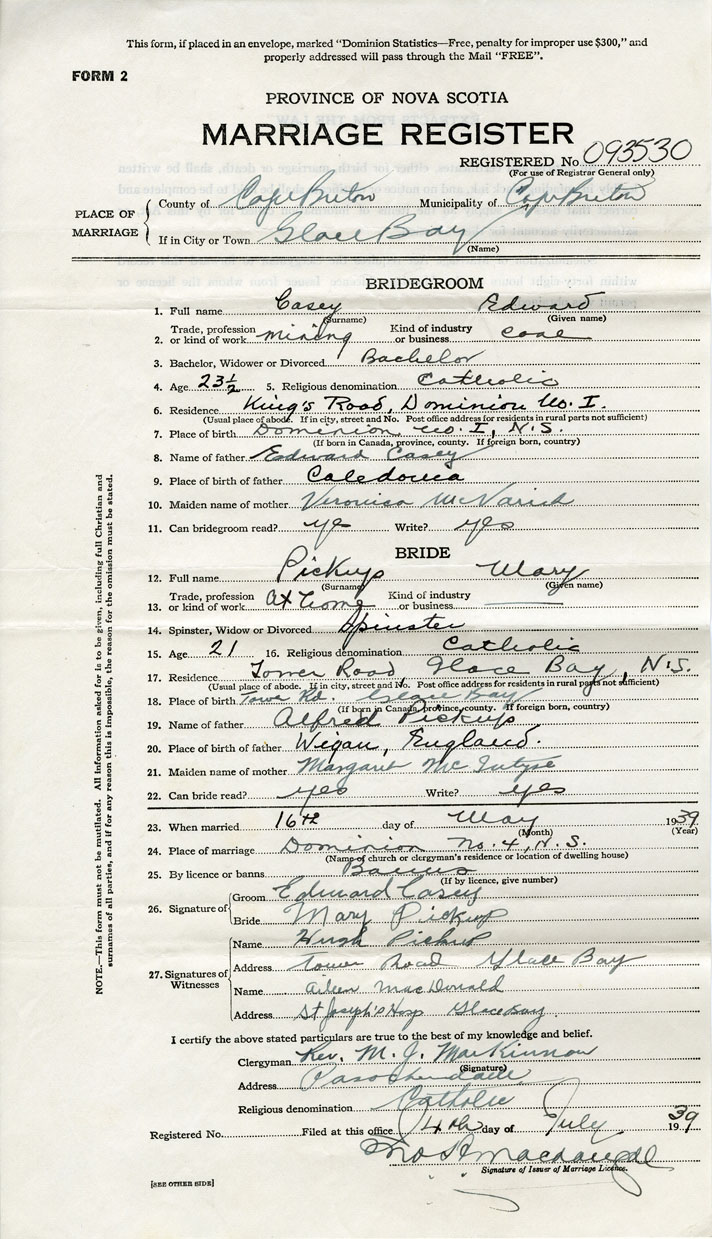 This form, if placed in an envelope, marked "Dominion Statistics—Free, penalty for improper use $300," and
properly addressed will pass through the Mail "FREE".
FORM 2
PROVINCE OF NOVA SCOTIA
MARRIAGE REGISTER
REGISTERED No. 093530
(For use of Registrar General only)
PLACE OF MARRIAGE
County of Cape Breton Municipality of Cape Breton
If in City or Town Glace Bay
(Name)
BRIDEGROOM
1. Full name Casey Edward
(Surname) (Given name)
2. Trade, profession or kind of work mining Kind of industry or business coal
3. Bachelor, Widower or Divorced Bachelor
4. Age 23½ 5. Religious denomination Catholic
6. Residence King's Road, Dominion No. I.
(Usual place of abode. If in city, street and No. Post office address for residents in rural parts not sufficient)
7. Place of birth Dominion No. I, N.S.
(If born in Canada, province, county. If foreign born, country)
8. Name of father Edward Casey
9. Place of birth of father Caledonia
10. Maiden name of mother Veronica
11. Can bridegroom read? yes Write? yes
BRIDE
12. Full name Pickup Mary
(Surname) (Given name)
13. Trade, profession or kind of work at home Kind of industry or business
14. Spinster, Widow or Divorced Spinster
15. Age 21 16. Religious denomination Catholic
17. Residence Tower Road, Glace Bay, N.S.
(Usual place of abode. If in city, street and No. Post office address for residents in rural parts not sufficient)
18. Place of birth Tower Rd. Glace Bay
(If born in Canada, province, county. If foreign born, country)
19. Name of father Alfred Pickup
20. Place of birth of father Wigan, England.
21. Maiden name of mother Margaret McIntyre
22. Can bride read? yes Write? yes
23. When married 16th day of May 1939
(Month) (Year)
24. Place of marriage Dominion No. 4, N.S.
(Name of church or clergyman's residence or location of dwelling house)
25. By licence or banns Banns
(If by licence, give number)
26. Signature of
Groom Edward Casey
Bride Mary Pickup
27. Signatures of Witnesses
Name Hugh Pickup
Address Tower Road Glace Bay
Name Aileen MacDonald
Address St Joseph's Hosp Glace Bay.
I certify the above stated particulars are true to the best of my knowledge and belief.
Clergyman Rev. M. J. MacKinnon
(Signature)
Address
Religious denomination Catholic
Registered No. Filed at this office 4th day of July 1939
Signature of Issuer of Marriage Licence.
[SEE OTHER SIDE]
NOTE.—This form must not be mutilated. All Information asked for is to be given, including full Christian and
surnames of all parties, and if for any reason this is impossible, the reason for the omission must be stated.